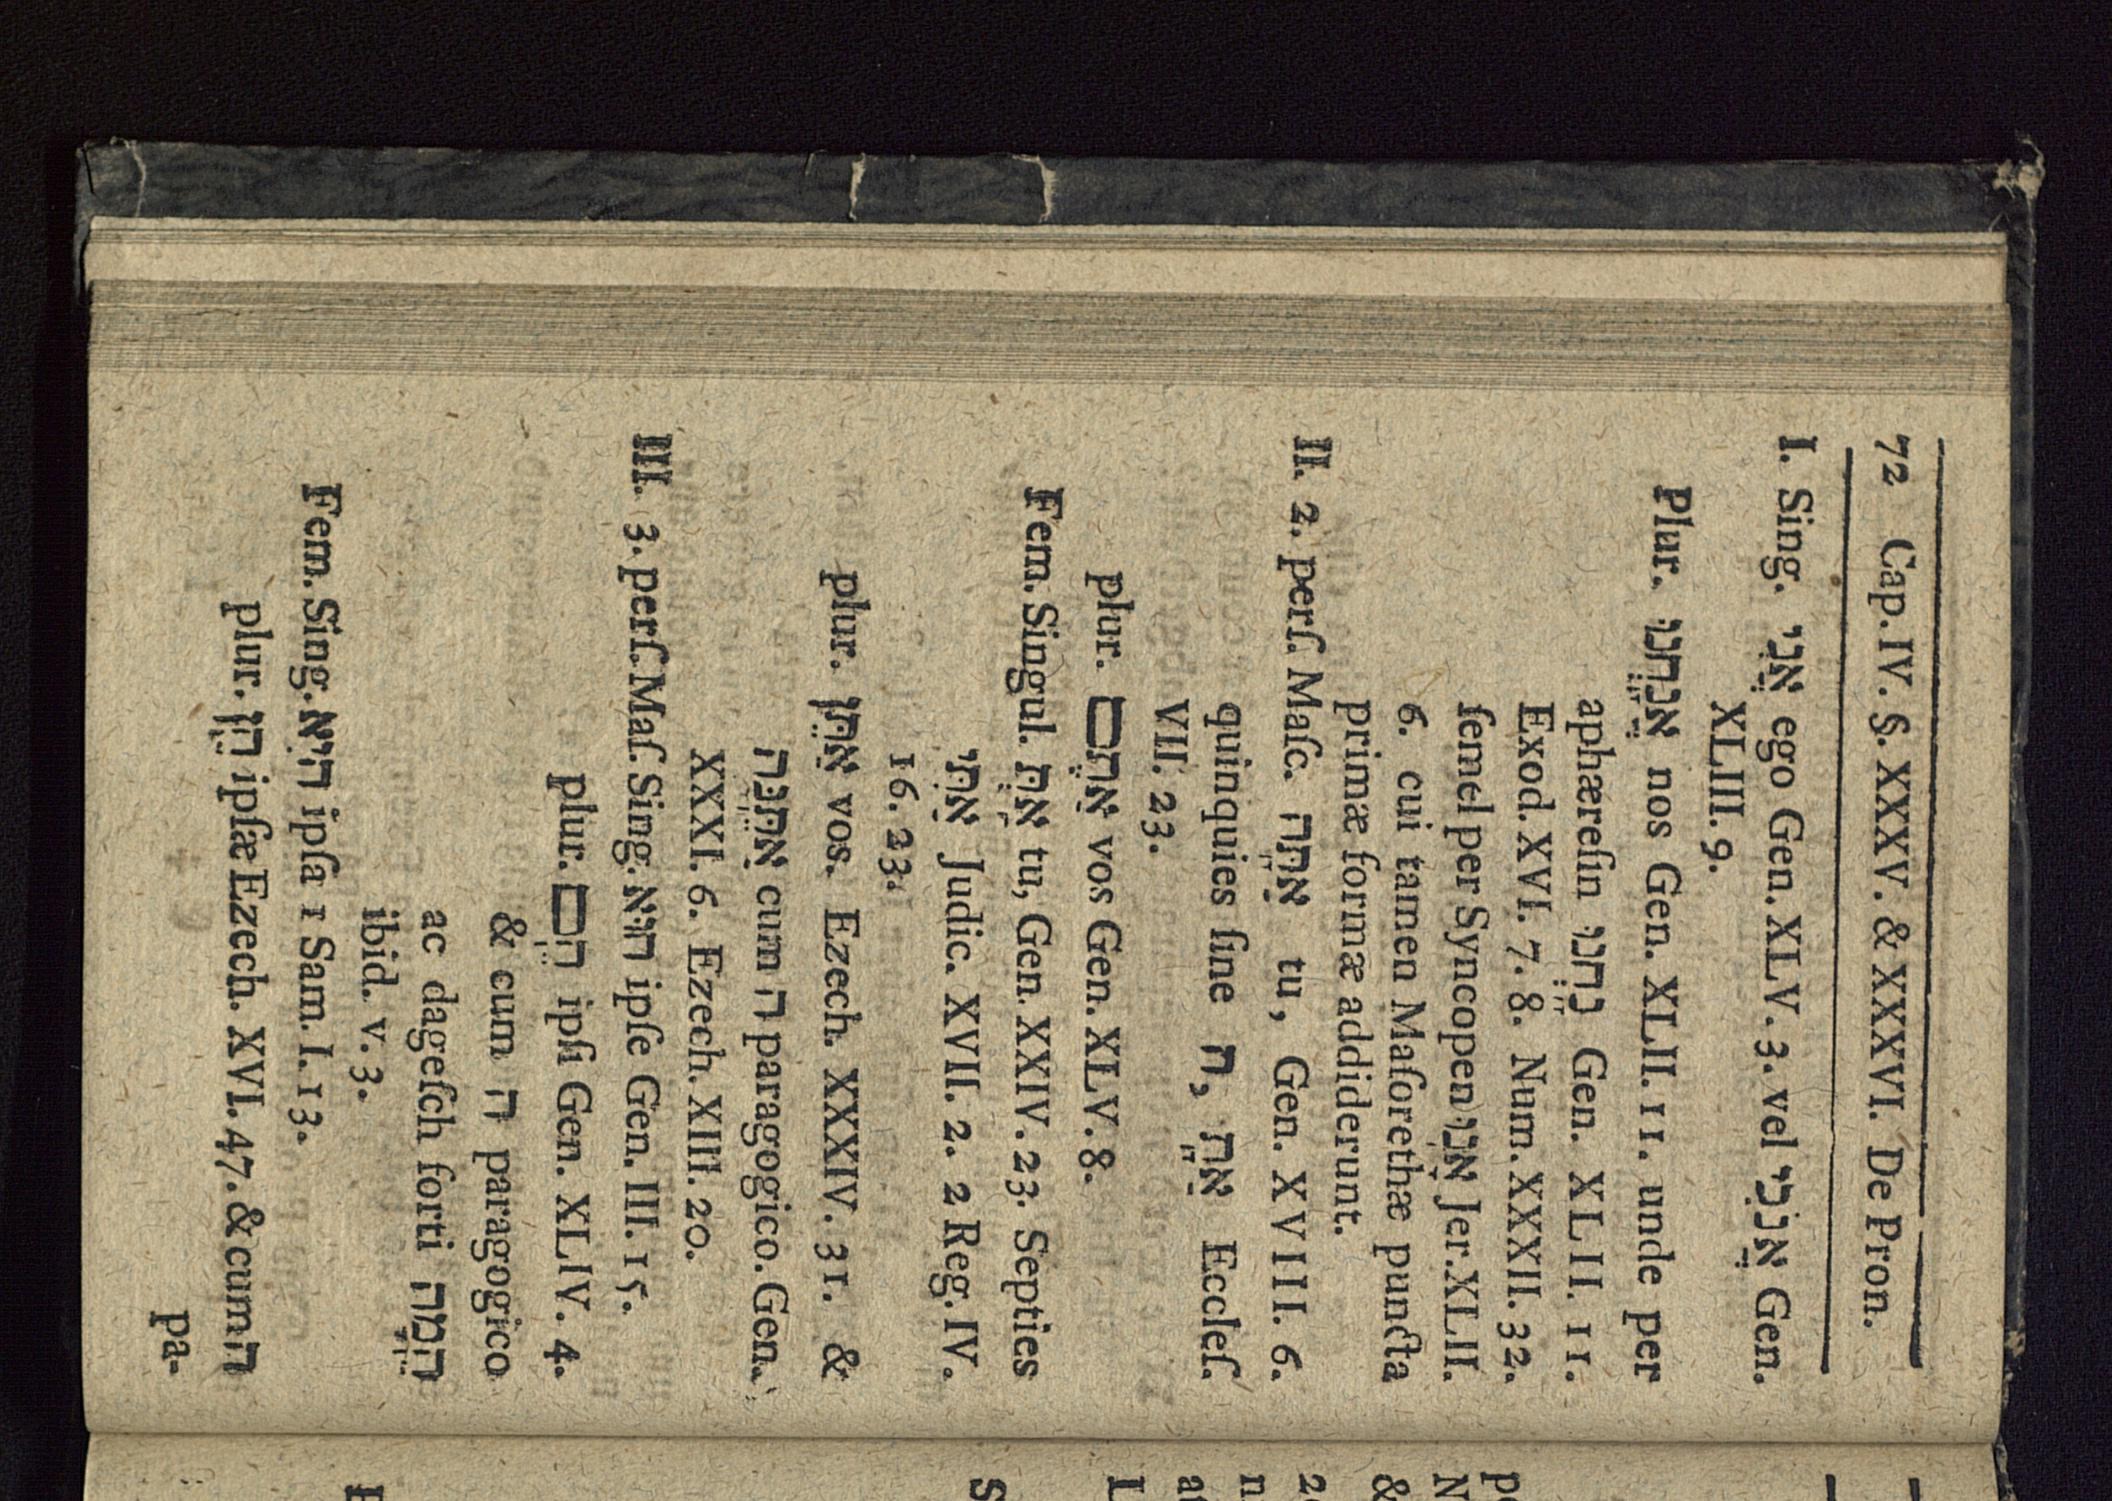 72 Cap. IV. §. XXXV. & XXXVI. De Pron.
I. Sing. אֲנִי ego Gen. XLV. 3. vel אָנֹכִי Gen.
XLIII. 9.
Plur. אֲנַחְנוּ nos Gen. XLII. 11. unde per
aphæreſin נַחְנוּ Gen. XLII. 11.
Exod. XVI. 7. 8. Num. XXXII. 32.
ſemel per Syncopen אָנוּ Jer. XLII.
6. cui tamen Maſorethæ puncta
primæ formæ addiderunt.
II. 2. perſ. Maſc. אַתָּה tu, Gen. XVIII. 6.
quinquies ſine ה, אַתָּ Eccleſ.
VII. 23.
plur. אַתֶּם vos Gen. XLV. 8.
Fem. Singul. אַתְּ tu, Gen. XXIV. 23. Septies
אַתִּי Judic. XVII. 2. 2 Reg. IV.
16. 23.
plur. אַתֵּן vos. Ezech. XXXIV. 31. &
אַתֵּנָּה cum ה paragogico. Gen.
XXXI. 6. Ezech. XIII. 20.
III. 3. perſ. Maſ. Sing. הוּא ipſe Gen. III. 15.
plur. הֵם ipſi Gen. XLIV. 4.
& cum ה paragogico
ac dageſch forti הֵמָּה
ibid. v. 3.
Fem. Sing. הִיא ipſa 1 Sam. I. 13.
plur. הֵן ipſæ Ezech. XVI. 47. & cum ה
pa-